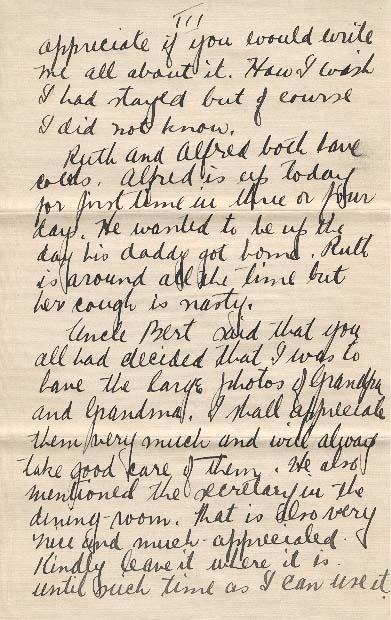 III
appreciate if you would write
me all about it. How I wish
I had stayed but of course
I did not know.
Ruth and Alfred both have
colds. Alfred is up today
for first time in three or four
days. He wanted to be up the
day his daddy got home. Ruth
is around all the time but
her cough is nasty.
Uncle Bert said that you
all had decided that I was to
have the large photos of Grandpa
and Grandma. I shall appreciate
them very much and will always
take good care of them. He also
mentioned the secretary in the
dining-room. That is also very
nice and much appreciated.
Kindly leave it where it is
until such time as I can use it.